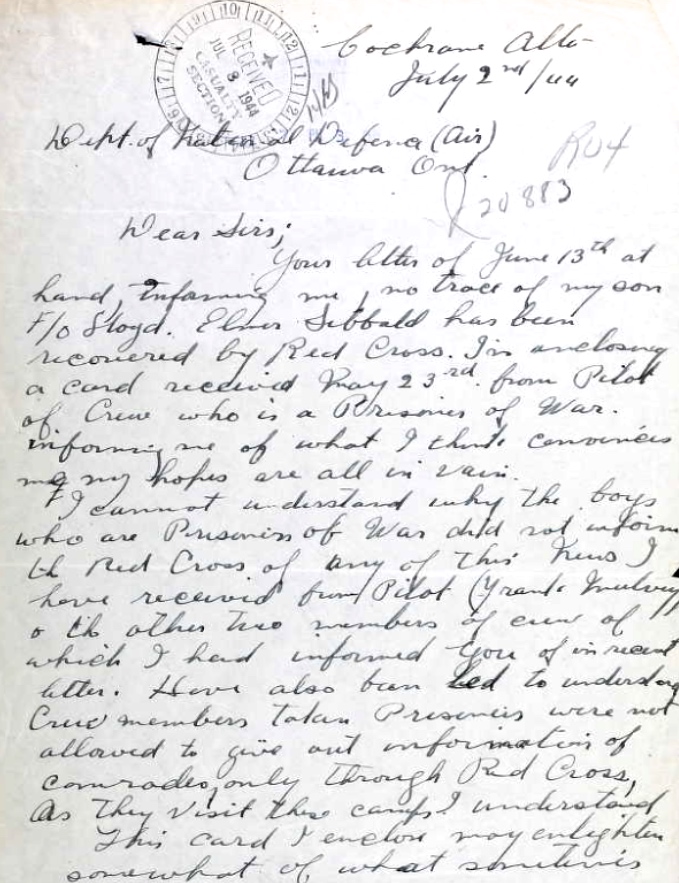 Cochrane Alta
July 2nd/44
RECEIVED
JUL 8 1944
CASUALTY
SECTION
Dept. of National Defence (Air)
Ottawa Ont.
R04
20883
Dear Sirs;
Your letter of June 13th at
hand, Informing me, no trace of my son
F/O Lloyd. Elmer Sibbald has been
recovered by Red Cross. I'm enclosing
a card received May 23rd. from Pilot
of Crew who is a Prisoner of War.
informing me of what I think convinces
me my hopes are all in vain.
I cannot understand why the boys
who are Prisoners of War did not inform
the Red Cross of any of this News I
have received from Pilot (Grant
o the other two members of crew of
which I had informed you of in recent
letter. Have also been led to understand
Crew members taken Prisoners were not
allowed to give out information of
comrades, only through Red Cross,
As they visit these camps. I understand
This card I enclose may enlighten
somewhat of what sometimes